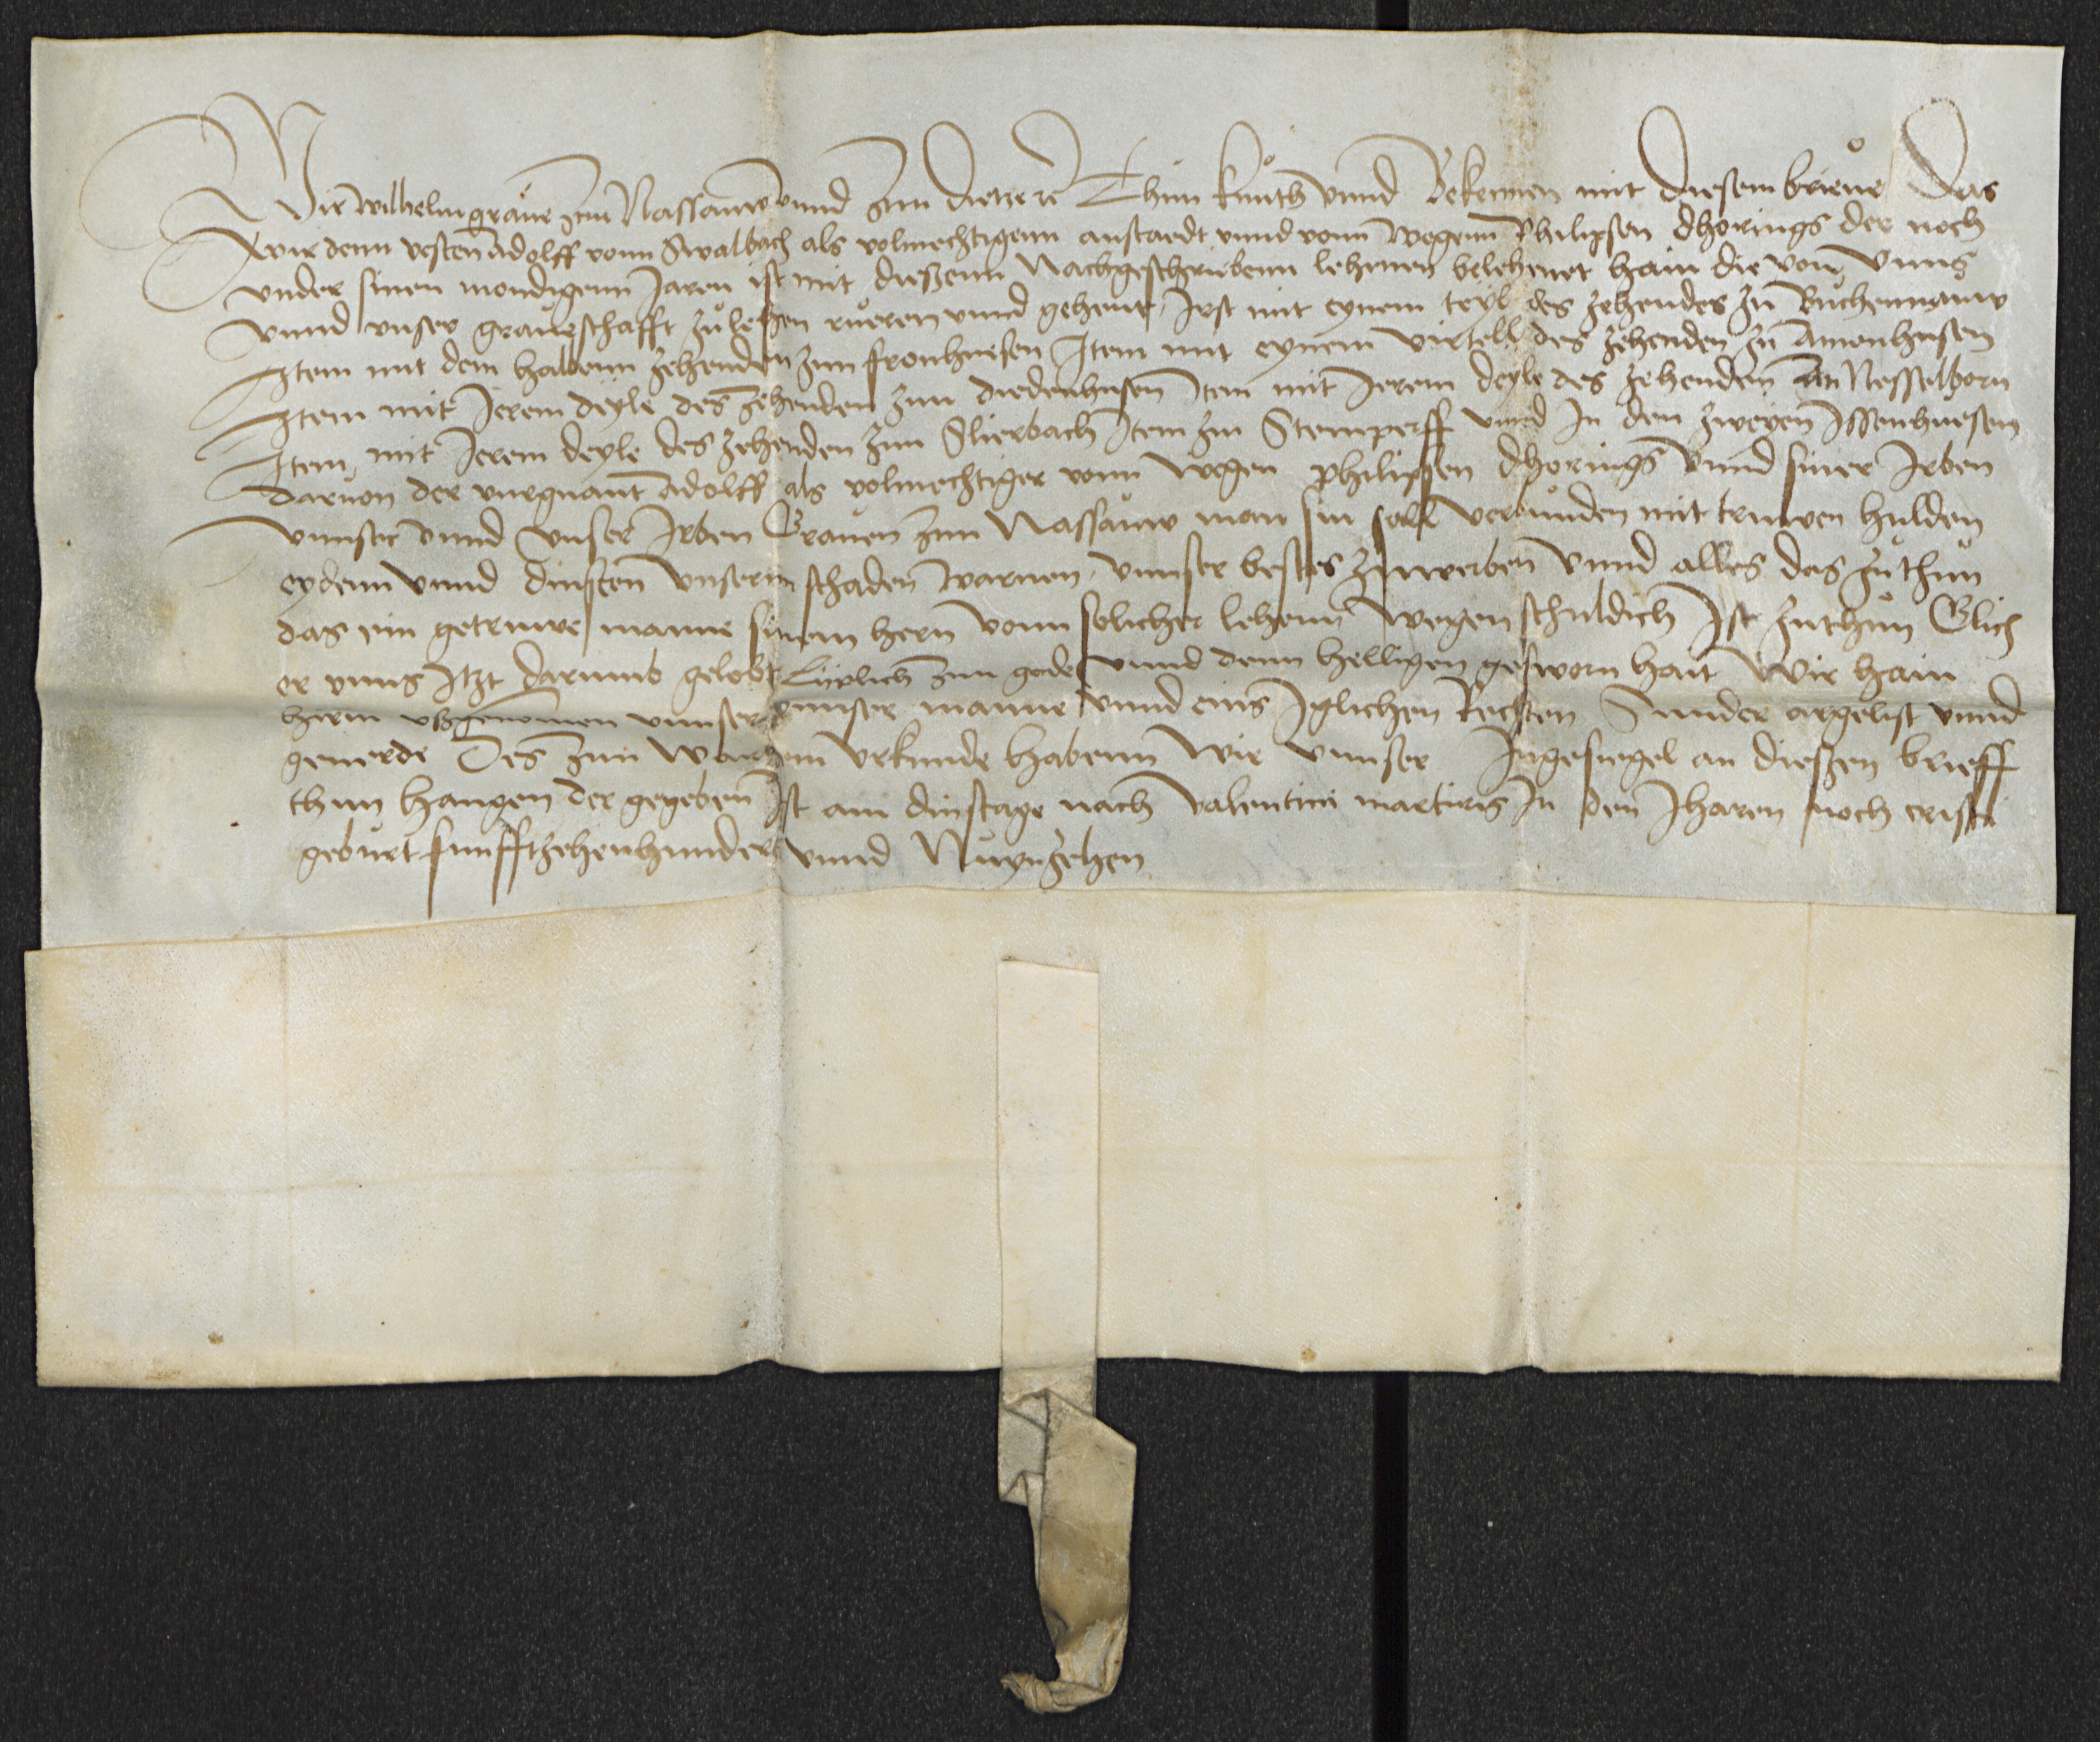 Wir Wilhelm graue zcu Nassauw vnnd zcu dietze rc Thun kunth vnnd Bekennen mit diesem brieue Das
wir denn vesten Adolff vonn Swalbach als volmechtigenn anstaedt vnnd vonn wegenn Philipsen dhorings der noch
vnder sinen mondigenn Jaren ist mit dießenn Nachgeschriebenn lehenen belehenet hain die von vnns
vnnd vnser graueschafft zu lehen rueren vnnd gehent, Irst mit eynem teyl des zehendes zu Buchennauw
Item mit dem halbenn zehenden zun fronhuesen Item mit eynem virtell des zehenden zu Amonhusen
Item mit Jerem deyle des zehenden zun diedenhusen Item mit Jerem deyle des zehenden An Nesselborn
Item mit Jerem deyle des zehenden zun Slierbach Item zu Stemperff vnnd In den zweyen Issenhuesen
daruon der vurgnant Adolff als volmechtiger vonn wegen philipsen dhorings vnnd siner Irben
vnnser vnnd vnser Irben Grauen zun Nassauw man sin sall verbunden mit truwen hulden
eydenn vnnd dinsten vnsernn schaden warnen, vnnser bestes zuwerben vnnd alles das zuthun
das ein getruwe manne sinem hern vonn solicher lehenn wegen schuldich Ist zuthun Glich
er vnns Itzt darumb gelobt liplich zun gode vnnd denn helligen gesworn hait Wir hain
hirin vßgenomen vnnser vnnser manne vnnd eins Iglichen Rechten Sunder argelist vnnd
geuerde Des zun warem vrkunde habenn wir vnnser Ingesiegel an dießen brieff
thun hangen der gegeben Ist am dinstage nach valentini martiris In den Jharen noch cristi
geburt funfftzehenhundert vnnd Nuynzehen